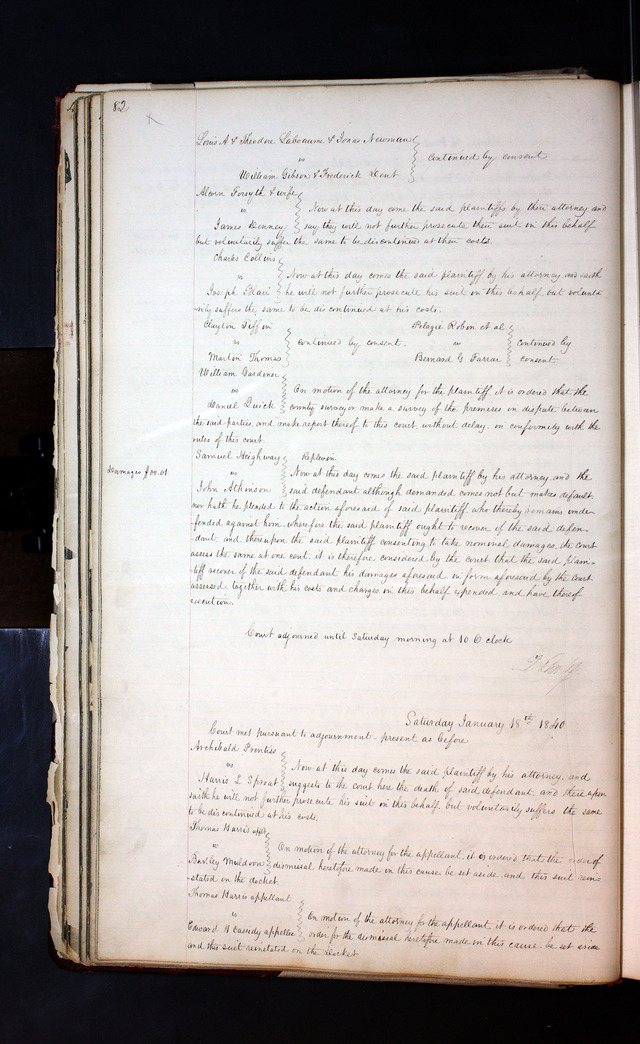 82
Louis A & Theodore Labeaume & Jonas Newman
vs
continued by consent
William Gibson & Frederick Dent
Alcorn Forsyth & wife
vs
Now at this day come the said plaintiffs by their attorney and
James Denney say they will not further prosecute their suit in this behalf
but voluntarily suffer the same to be discontinued at their costs.
Charles Collins
vs
Now at this day comes the said plaintiff by his attorney and saith
Joseph Blair he will not further prosecute his suit in this behalf but volunta
rily suffers the same to be discontinued at his costs.
Clayton Tiffin
vs
continued by consent.
Marton Thomas
Pelagie Robin et al
vs
continued by
Bernard G Farrar consent
William Gardener
vs
On motion of the attorney for the plaintiff it is ordered that the
Daniel Quick county surveyor make a survey of the premises in dispute between
the said parties, and make report thereof to this court without delay, in conformity with the
rules of this court.
Samuel Heighway Replevin
Damages $00.01
vs
Now at this day comes the said plaintiff by his attorney and the
John Atkinson said defendant although demanded comes not but makes default
nor hath he pleaded to the action aforesaid of said plaintiff who thereby remains unde-
fended against him, wherefore the said plaintiff ought to recover of the said defen-
dant and thereupon the said plaintiff consenting to take nominal damages, the court
assess the same at one cent. it is therefore considered by the court that the said plain-
tiff recover of the said defendant his damages aforesaid in form aforesaid by the court
assessed together with his costs and charges in this behalf expended and have thereof
execution.
Court adjourned until Saturday morning at 10 O clock
Saturday January 18th 1840
Court met pursuant to adjournment - present as before
Archibald Prentiss
vs
Now at this day comes the said plaintiff by his attorney, and
Harris L Sproat suggests to the court here the death of said defendant, and there upon
saith he will not further prosecute his suit in this behalf, but voluntarily suffers the same
to be discontinued at his costs.
Thomas Harris applt
vs
On motion of the attorney for the appellant, it is ordered that the order of
Bartley Muldoon dismissal heretofore made in this cause be set aside and this suit rein-
stated on the docket.
Thomas Harris appellant
vs
On motion of the attorney for the appellant it is ordered that the
Edward H Cassidy appellee order for the dismissal heretofore made in this cause be set aside
and this suit reinstated on the docket